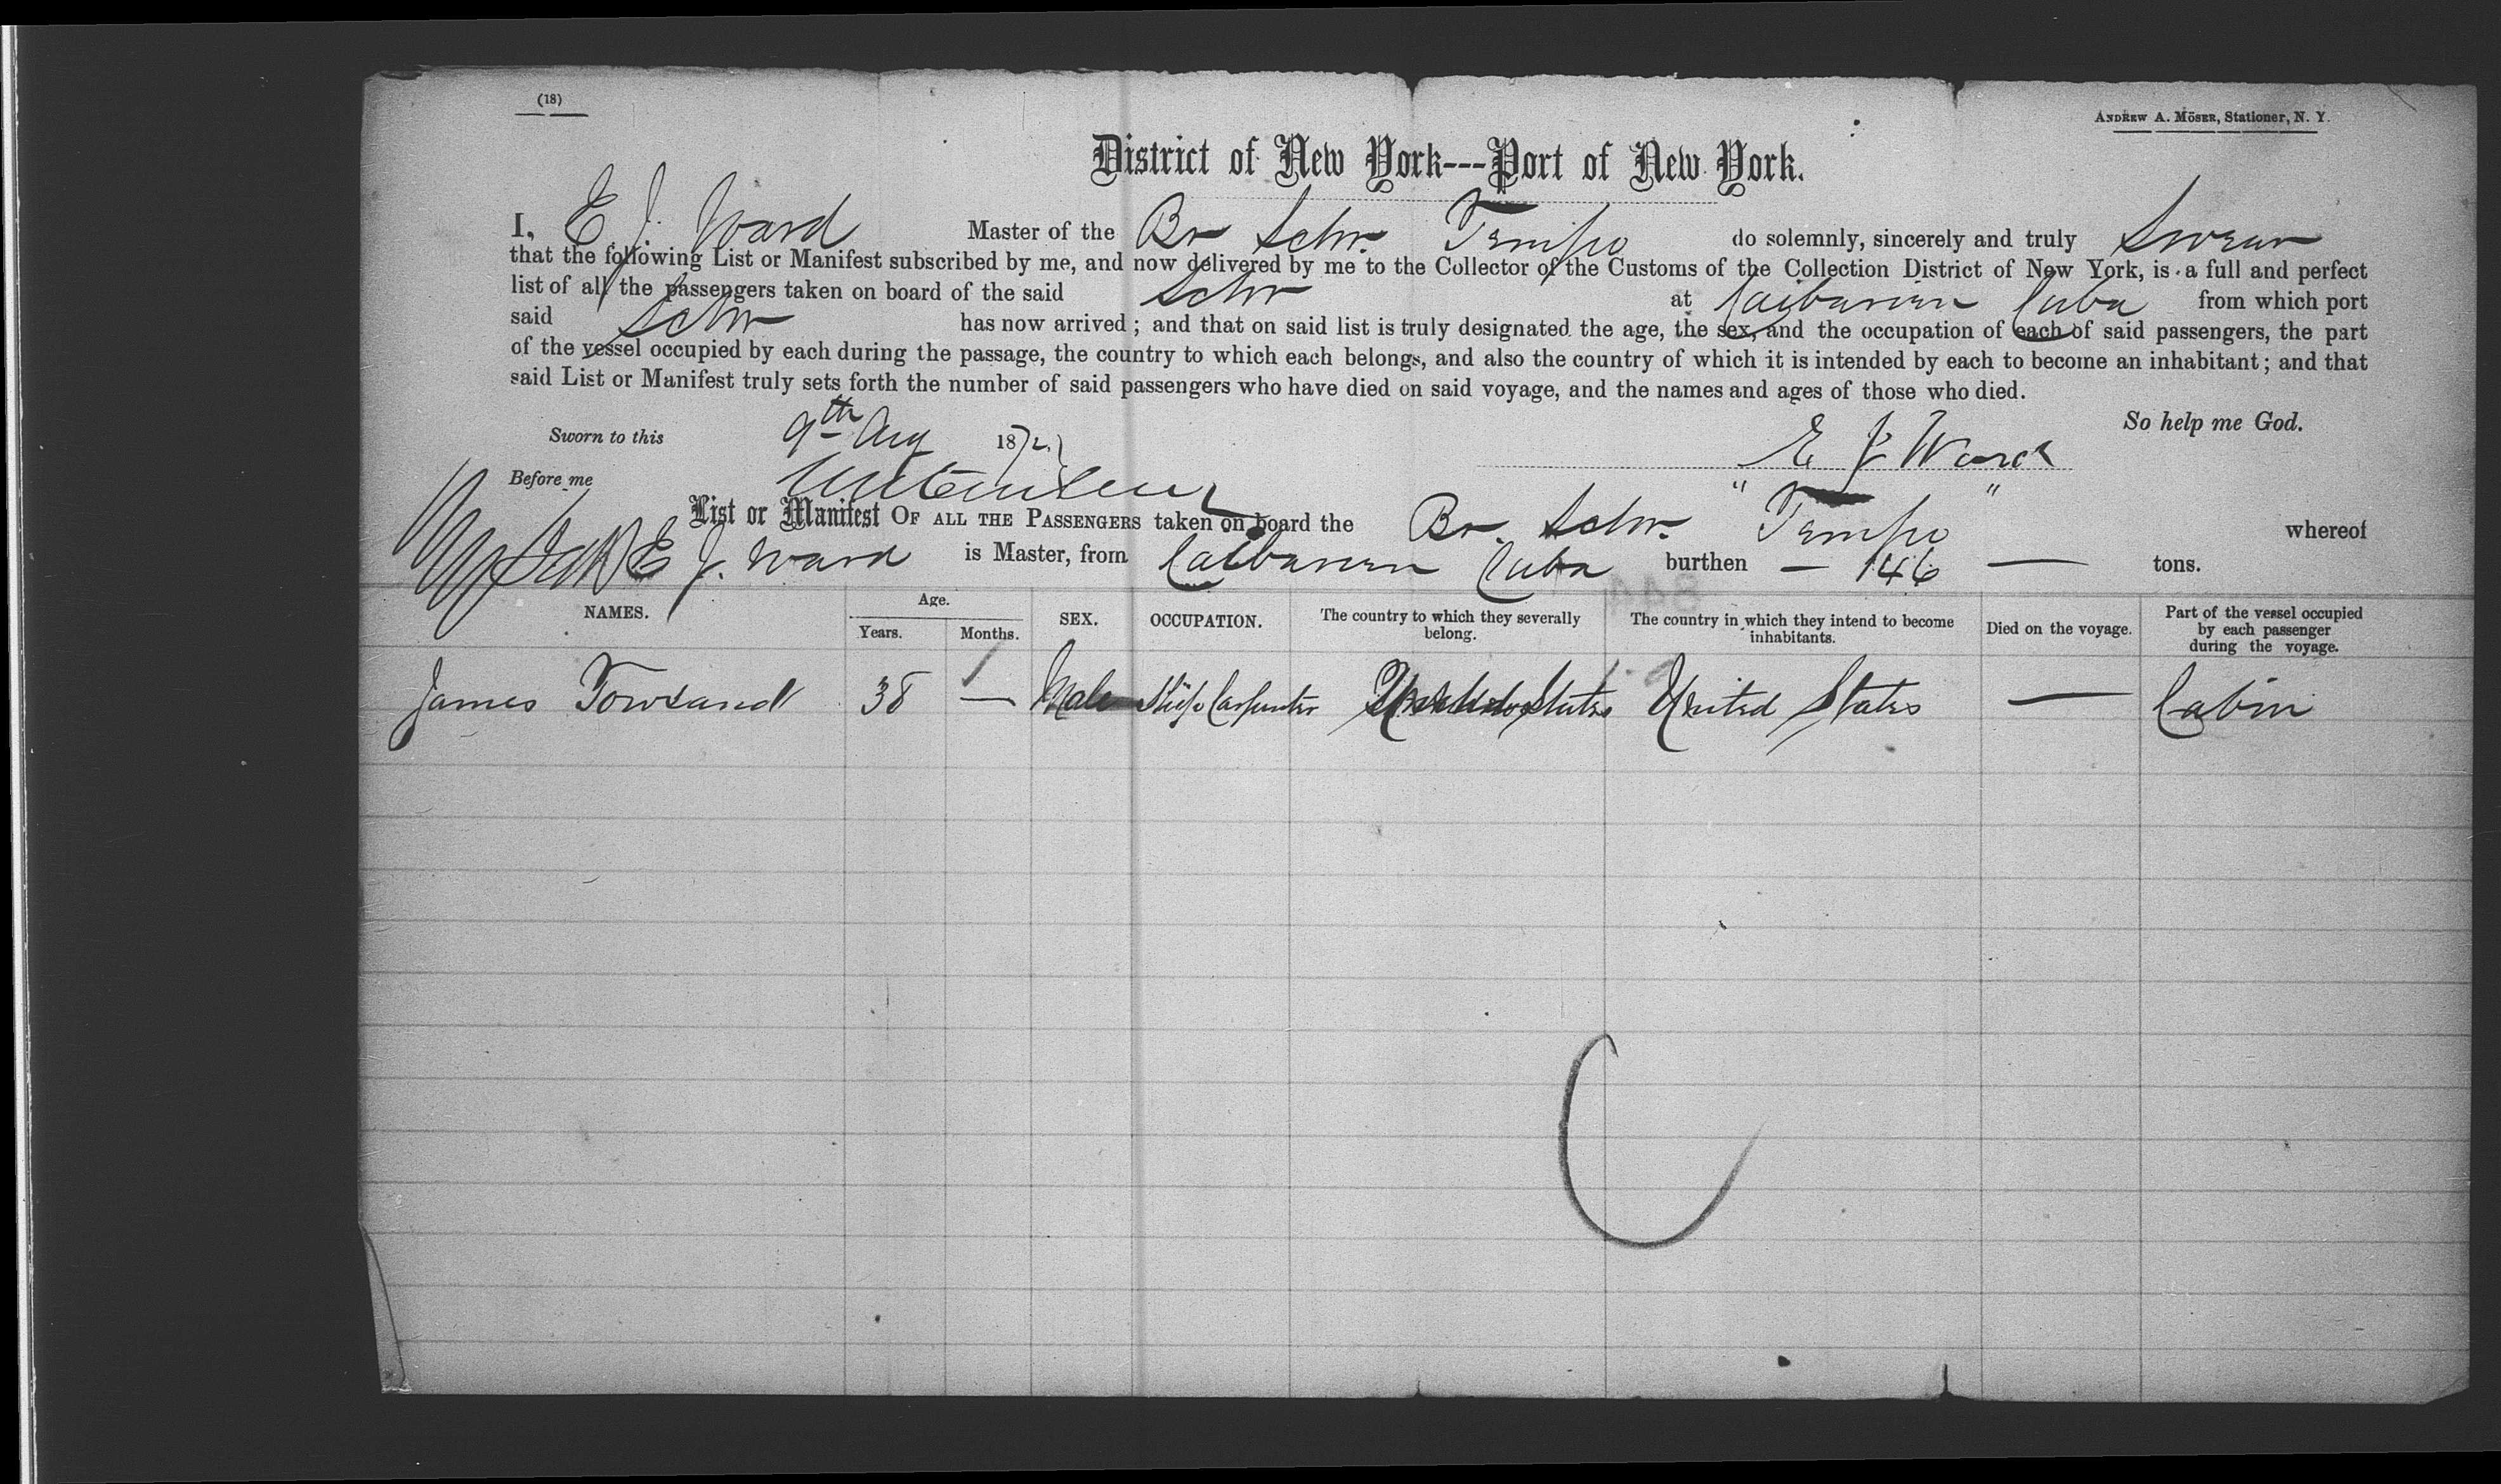 (18)
ANDREW A. MÖSER, Stationer, N. Y.
District of New York---Port of New York.
I, E. J. Ward Master of the Br Schr. Tempo do solemnly, sincerely and truly Swear
that the following List or Manifest subscribed by me, and now delivered by me to the Collector of the Customs of the Collection District of New York, is a full and perfect
list of all the passengers taken on board of the said Schr at Caibarien Cuba from which port
said Schr has now arrived; and that on said list is truly designated the age, the sex, and the occupation of each of said passengers, the part
of the vessel occupied by each during the passage, the country to which each belongs, and also the country of which it is intended by each to become an inhabitant; and that
said List or Manifest truly sets forth the number of said passengers who have died on said voyage, and the names and ages of those who died.
So help me God.
Sworn to this 9th Aug 1872.
E J Ward
Before me
List or Manifest OF ALL THE PASSENGERS taken on board the Br. Schr. "Tempo" whereof
E J. Ward is Master, from Caibarien Cuba burthen — 146 — tons.
NAMES. Age. Years. Months. SEX. OCCUPATION. The country to which they severally belong. The country in which they intend to become inhabitants. Died on the voyage. Part of the vessel occupied by each passenger during the voyage.
James Towsand 38 — Male Ship Carpenter States United States — Cabin
C